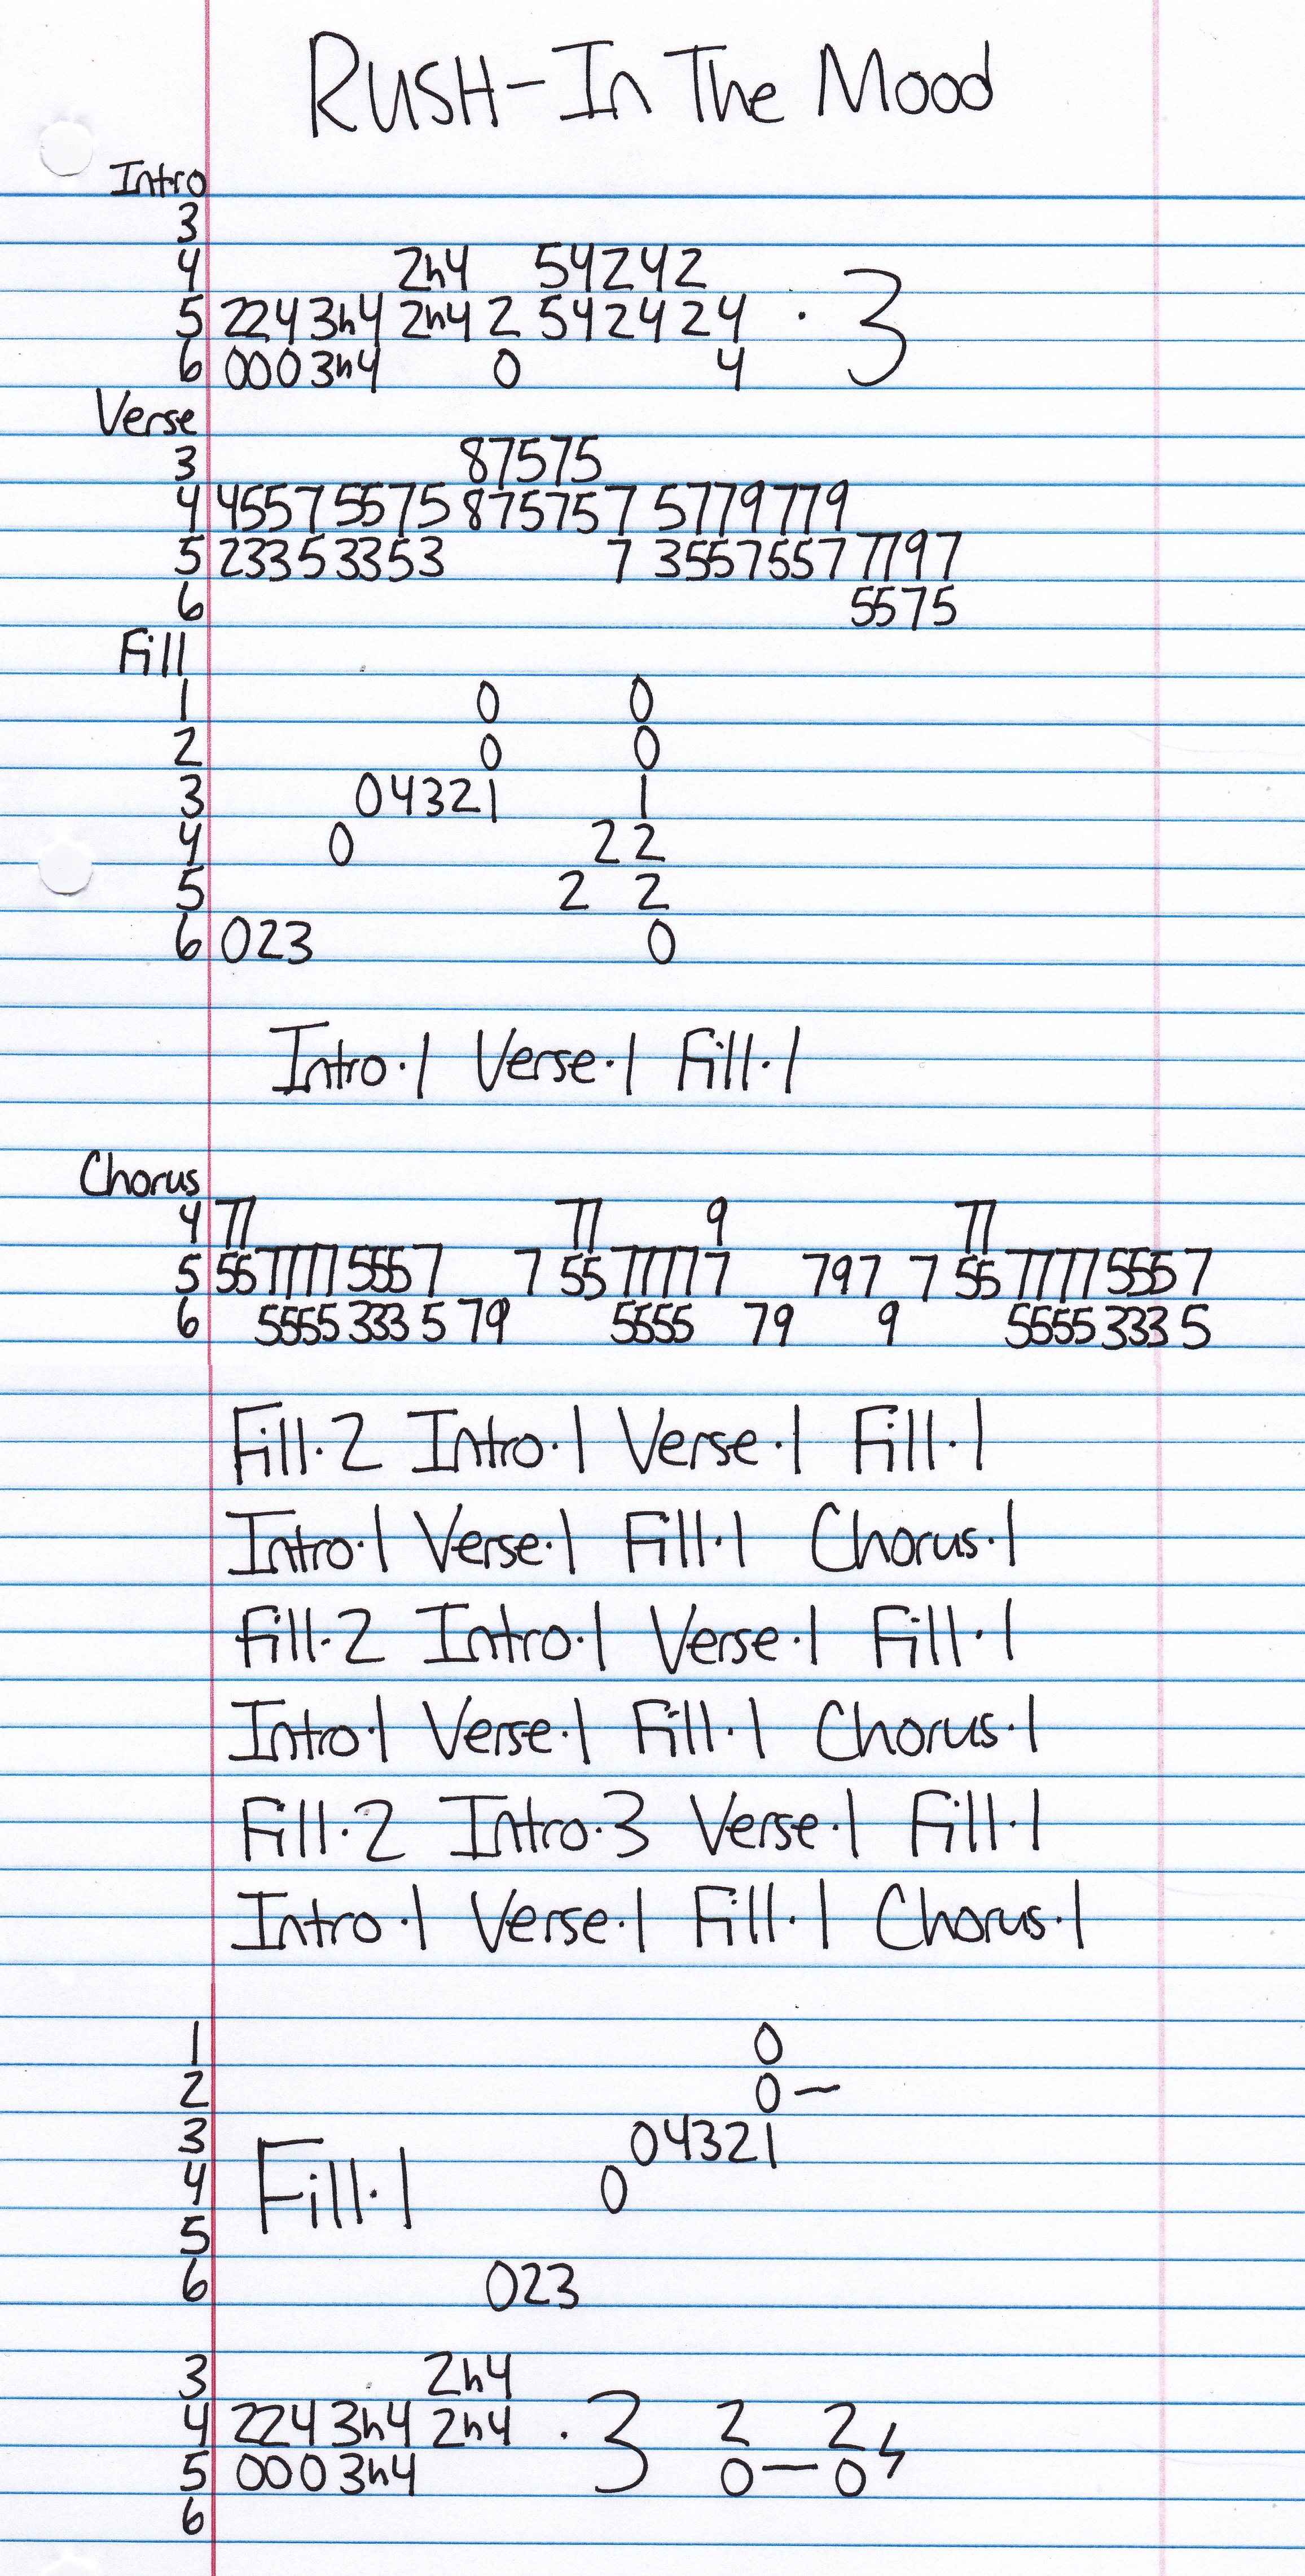 RUSH-In The Mood
Intro
3
4 2h4 54242
5 224 3h4 2h4 2 542424 · 3
6 000 3h4 0 4
Verse
3 87575
4 4557 5575 875757 5779779
5 2335 3353 7 3557557 7797
6 5575
Fill
1 0 0
2 0 0
3 04321 1
4 0 2 2
5 2 2
6 023 0
Intro·1 Verse·1 Fill·1
Chorus
4 77 77 9 77
5 55 7777 555 7 7 55 7777 7 797 7 55 7777 555 7
6 5555 333 5 79 5555 79 9 5555 333 5
Fill·2 Intro·1 Verse·1 Fill·1
Intro·1 Verse·1 Fill·1 Chorus·1
Fill·2 Intro·1 Verse·1 Fill·1
Intro·1 Verse·1 Fill·1 Chorus·1
Fill·2 Intro·3 Verse·1 Fill·1
Intro·1 Verse·1 Fill·1 Chorus·1
1 0
2 0 —
3 04321
4 Fill·1 0
5
6 023
3 2h4
4 224 3h4 2h4 · 3 2 2
5 000 3h4 0 — 0
6